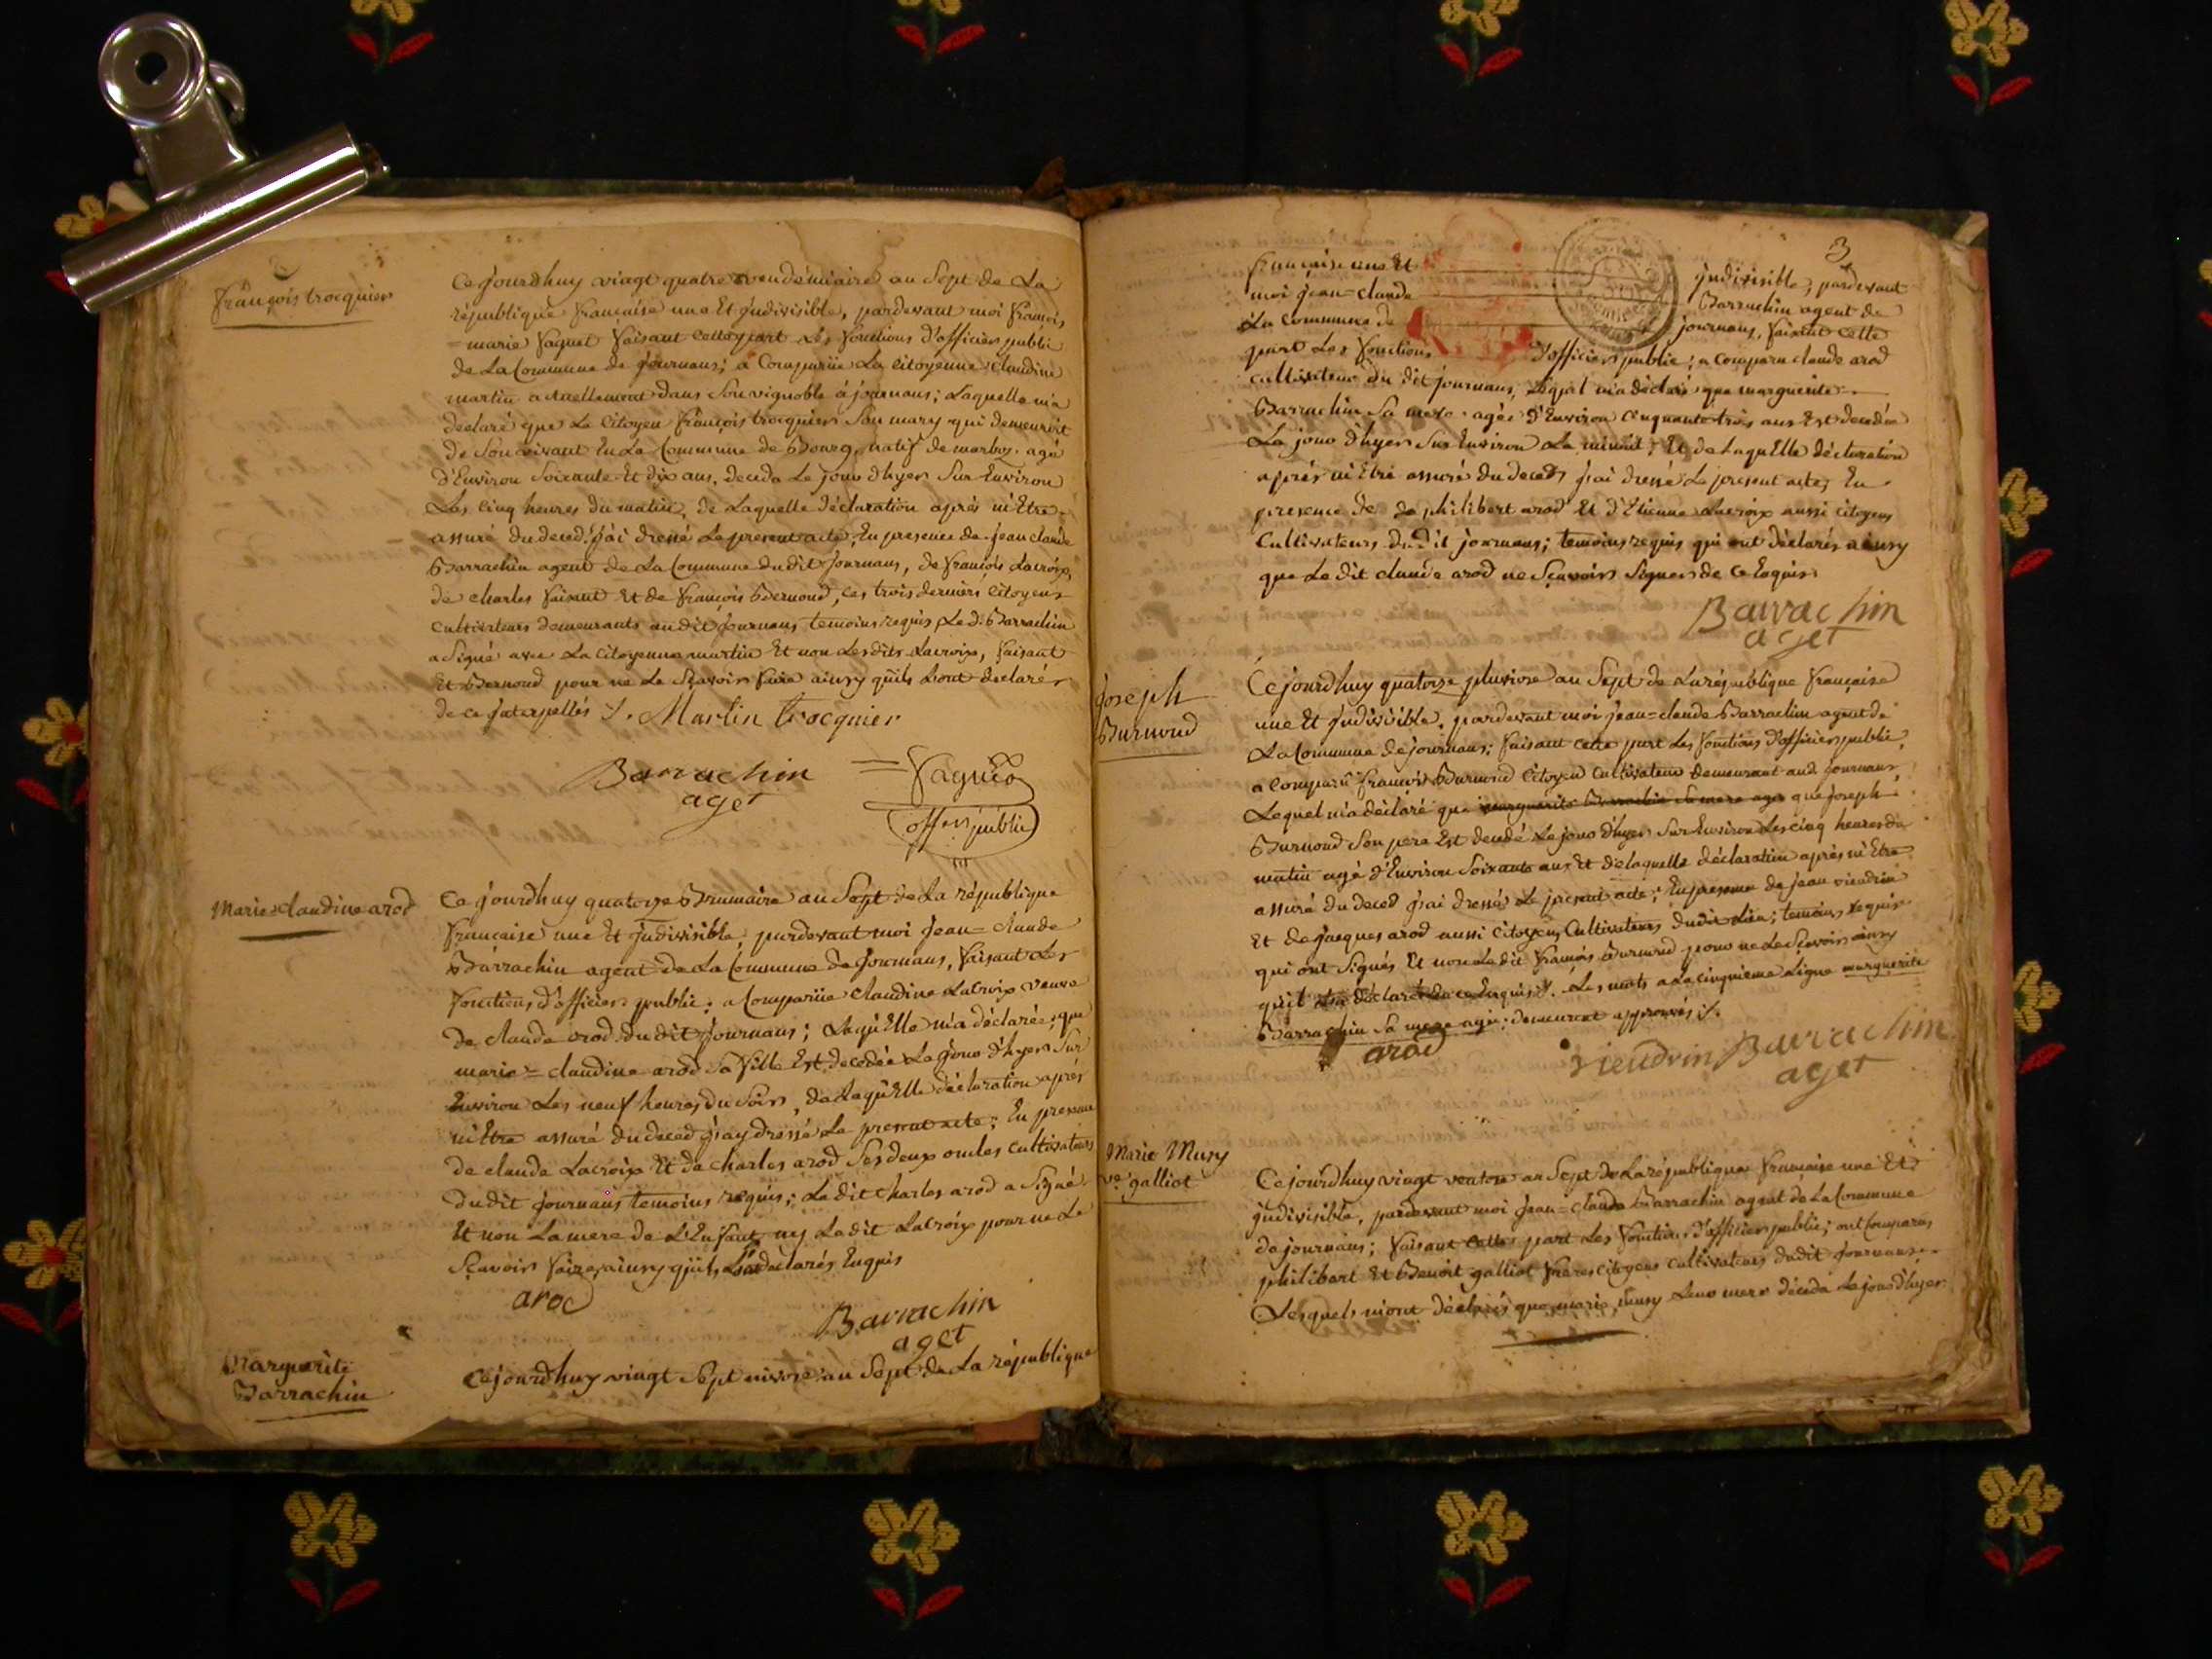 françois trocquier
Ce jourdhuy vingt quatre vendemiaire an Sept de La
république française une Et jndivisible, pardevant moi françois
=marie faguet faisant cette part Les fonctions d'officier public
de La Commune de journans; a Comparüe La Citoyenne Claudine
martin actuellement dans Son vignoble a journans; Laquelle m'a
declaré que Le Citoyen françois trocquier Son mary qui demeuroit
de Son vivant En La Commune de Bourg, natif de marboz. agé
d'Environ Soixante Et dix ans, deceda Le jour d'hyer Sur Environ
Les Cinq heures du matin, de Laquelle déclaration après m'Etre
assuré du deced. j'ai dressé Le present acte, En presence de jean claude
Barrachin agent de La Commune du dit journans, de françois Lacroix,
de charles faisant Et de françois Bernoud, Ces trois derniers Citoyens
Cultivateurs demeurants au dit journans temoins requis, Le d. Barrachin
a Signé avec La Citoyenne martin Et non Lesdits Lacroix, faisant
Et Bernoud pour ne Le Sçavoir faire ainsy qu'ils L'ont declarés
de ce jnterpellés ⁒. Martin trocquier
Barrachin
aget
faguet
offer public
Marie=claudine arod
Ce jourdhuy quatorze Brumaire an Sept de La république
française une Et jndivisible, pardevant moi jean=claude
Barrachin agent de La Commune de journans, faisant Les
fonctions d'officier public; a Comparüe claudine Lacroix veuve
de claude arod du dit journans; Laqu'Elle m'a déclarée; que
marie=claudine arod Sa fille Est decedée Le jour d'hyer Sur
Environ Les neuf heures du Soir, de Laqu'Elle déclaration après
m'Etre assuré du deced j'ay dressé Le present acte; En presence
de claude Lacroix Et de charles arod Ses deux oncles Cultivateurs
dudit journans temoins requis; Le dit charles arod a Signé
Et non La mere de L'Enfant ny Ledit Lacroix pour ne Le
Sçavoir faire, ainsy qu'ils declarés Enquis
arod
Barrachin
aget
Marguerite
Barrachin
Ce jourdhuy vingt Sept nivose an Sept de La république
3
française une Et jndivisible, pardevant
moi jean=claude Barrachin agent de
La Commune de journans, faisant Cette
part Les fonctions d'officier public; a Comparu claude arod
Cultivateur du dit journans, Lequel m'a déclaré que marguerite
Barrachin Sa mere agée d'Environ Cinquante trois ans Est decedée
Le jour d'hyer Sur Environ La minuit; Et de LaquElle déclaration
après m'Etre assuré du deced, j'ai dressé Le present acte, En
presence de de philibert arod Et d'Etienne Lacroix aussi Citoyens
Cultivateurs dudit journans; temoins requis qui ont déclarés ainsy
que Le dit claude arod ne Sçavoir Signer de Ce Enquis
Barrachin
aget
joseph
Burnoud
Ce jourdhuy quatorze pluviose an Sept de La république française
une Et jndivisible, pardevant moi jean=claude Barrachin agent de
La Commune de journans; faisant Cette part Les fonctions d'officier public,
a Comparû françois Burnoud Citoyen Cultivateur demeurant aud. journans,
Lequel m'a déclaré que marguerite Barrachin Sa mere agée que joseph
Burnoud Son pere Est decedé Le jour d'hyer Sur Environ Les Cinq heures du
matin agé d'Environ Soixante ans Et de laquelle déclaration après m'Etre
assuré du deced j'ai dressé Le present acte; En presence de jean viendrin
Et de jacques arod aussi Citoyens Cultivateurs dudit Lieu; temoins requis
qui ont Signés Et non Ledit françois Burnoud pour ne Le Sçavoir ainsy
qu'il déclaré de ce Enquis ⁒. Les mots a La Cinquieme Ligne marguerite
Barrachin Sa mere agée; demeurent approuvés ⁒.
arod
viendrin Barrachin
aget
Marie Musy
ve galliot
Ce jourdhuy vingt ventose an Sept de La république française une Et
jndivisible, pardevant moi jean=claude Barrachin agent de La Commune
de journans; faisant Cette part Les fonctions d'officier public; ont Comparus
philibert Et Benoit galliot freres Citoyens Cultivateurs dudit journans.
Lesquels m'ont déclarés que marie musy Leur mere décéda Le jour d'hyer